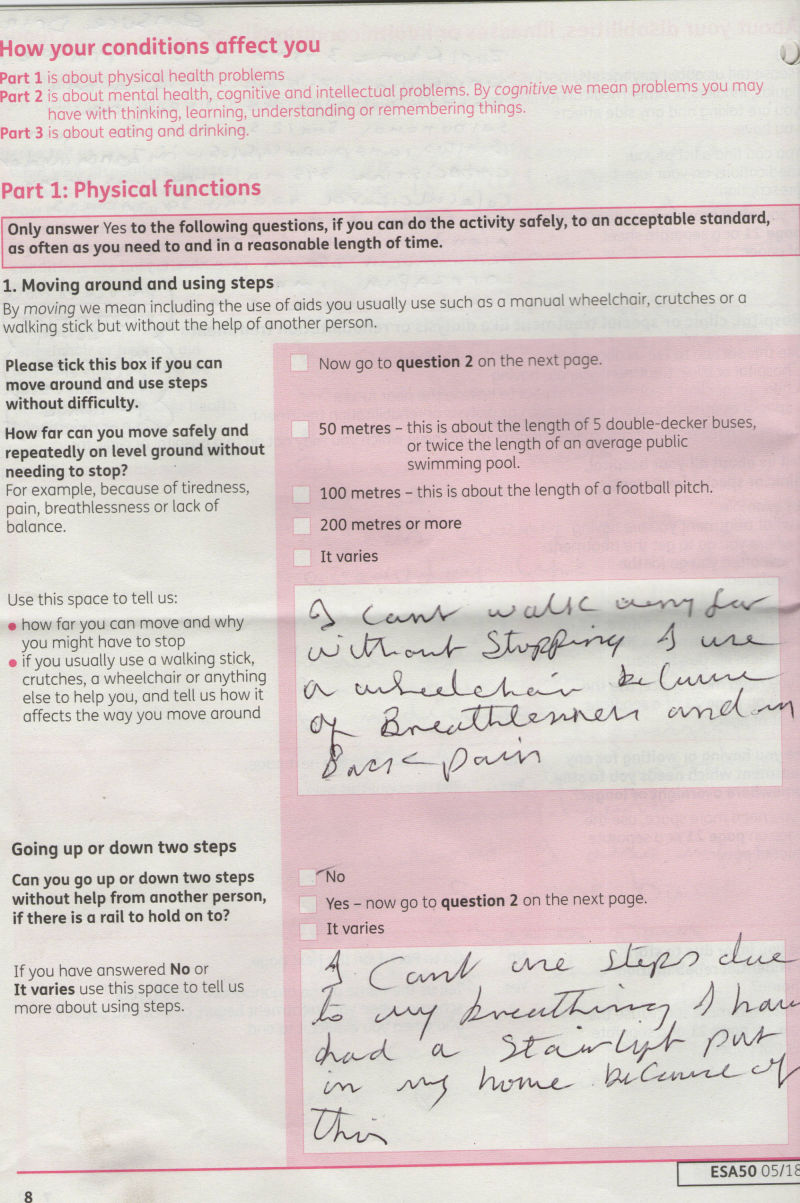 How your conditions affect you
Part 1 is about physical health problems
Part 2 is about mental health, cognitive and intellectual problems. By cognitive we mean problems you may
have with thinking, learning, understanding or remembering things.
Part 3 is about eating and drinking.
Part 1: Physical functions
Only answer Yes to the following questions, if you can do the activity safely, to an acceptable standard,
as often as you need to and in a reasonable length of time.
1. Moving around and using steps
By moving we mean including the use of aids you usually use such as a manual wheelchair, crutches or a
walking stick but without the help of another person.
Please tick this box if you can
move around and use steps
without difficulty.
Now go to question 2 on the next page.
How far can you move safely and
repeatedly on level ground without
needing to stop?
For example, because of tiredness,
pain, breathlessness or lack of
balance.
50 metres – this is about the length of 5 double-decker buses,
or twice the length of an average public
swimming pool.
100 metres – this is about the length of a football pitch.
200 metres or more
It varies
Use this space to tell us:
• how far you can move and why
you might have to stop
• if you usually use a walking stick,
crutches, a wheelchair or anything
else to help you, and tell us how it
affects the way you move around
I cant walk very far
without Stopping I use
a wheelchair because
of Breathlessness and
Back pain
Going up or down two steps
Can you go up or down two steps
without help from another person,
if there is a rail to hold on to?
No
Yes – now go to question 2 on the next page.
It varies
If you have answered No or
It varies use this space to tell us
more about using steps.
I Cant use steps due
to my breathing I have
had a Stairlift put
in my home because of
this
ESA50 05/18
8